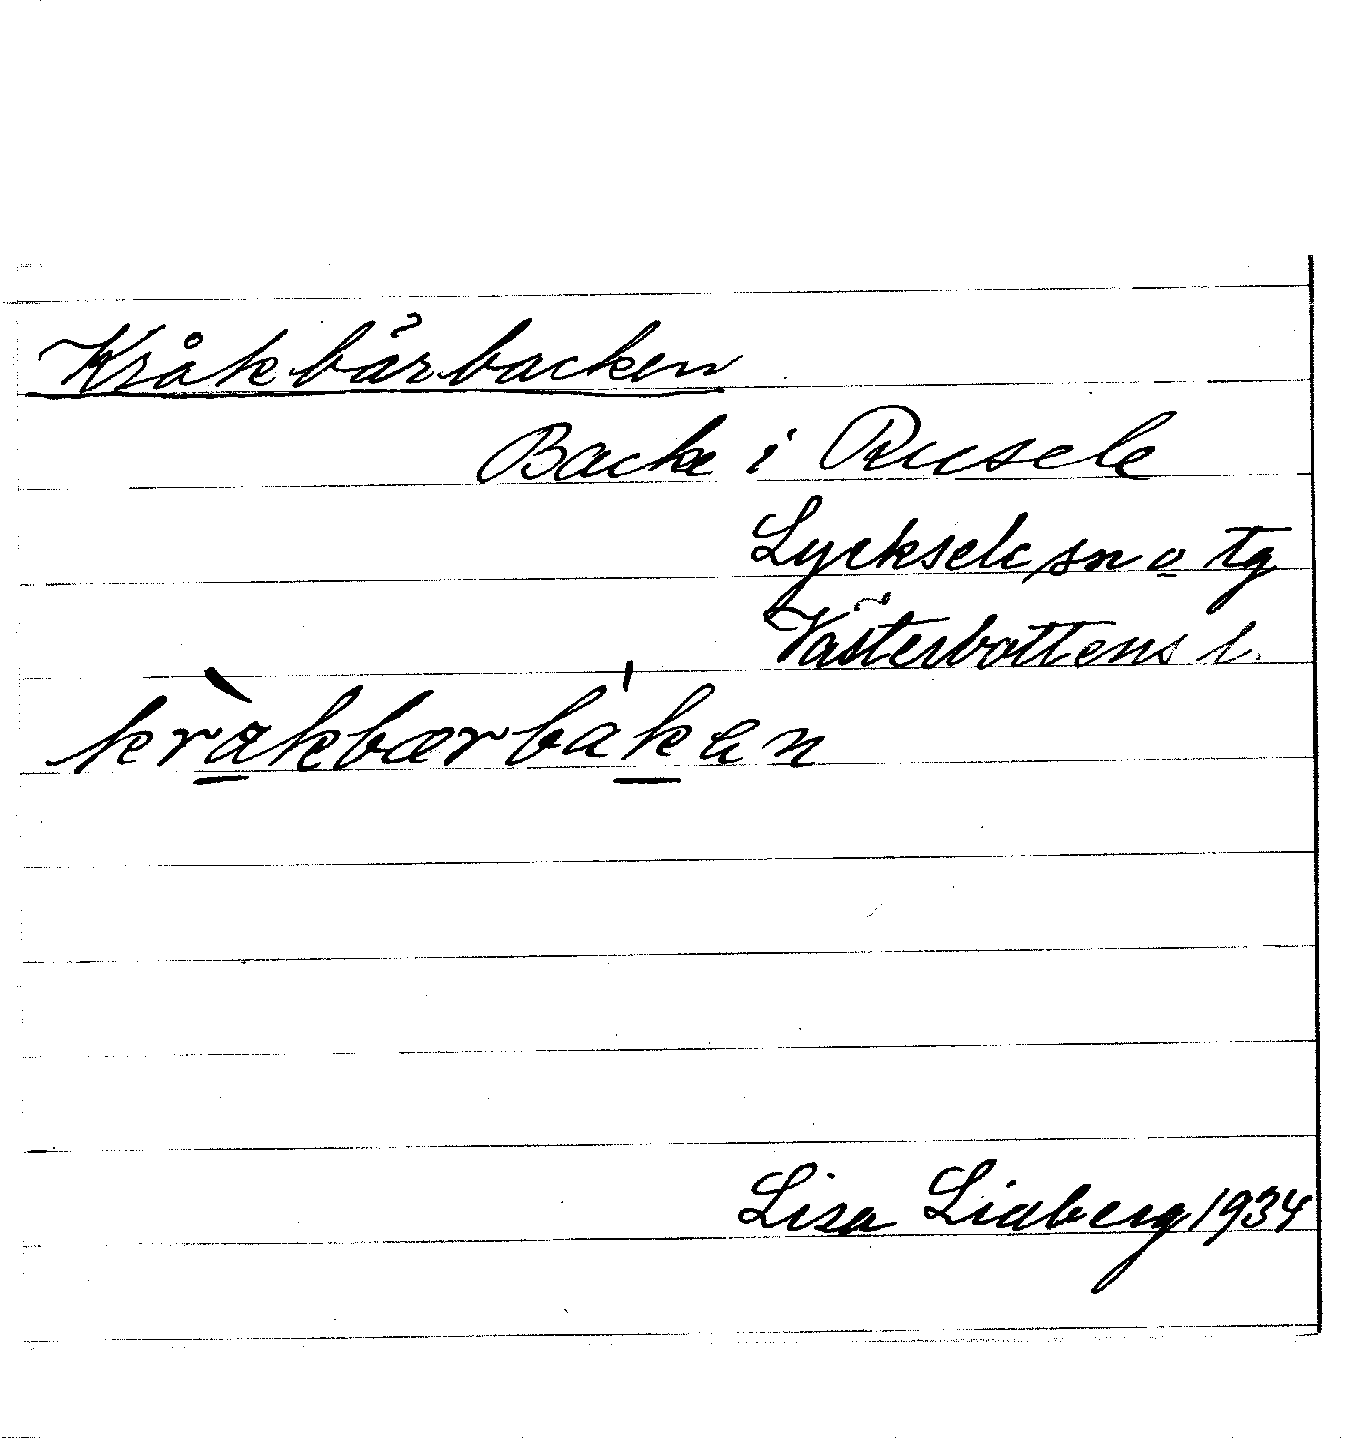 Kråkbärbacken
Backe i Rusele
Lycksele sn o tg
Västerbottens l.
kràkbærba̍kən
Lisa Lidberg 1934